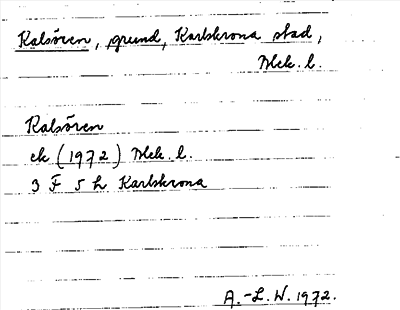 Kalvören, grund, Karlskrona stad,
Blek. l.
Kalvören
ek (1972) Blek. l.
3 F 5 h Karlskrona
A.-L. W. 1972.